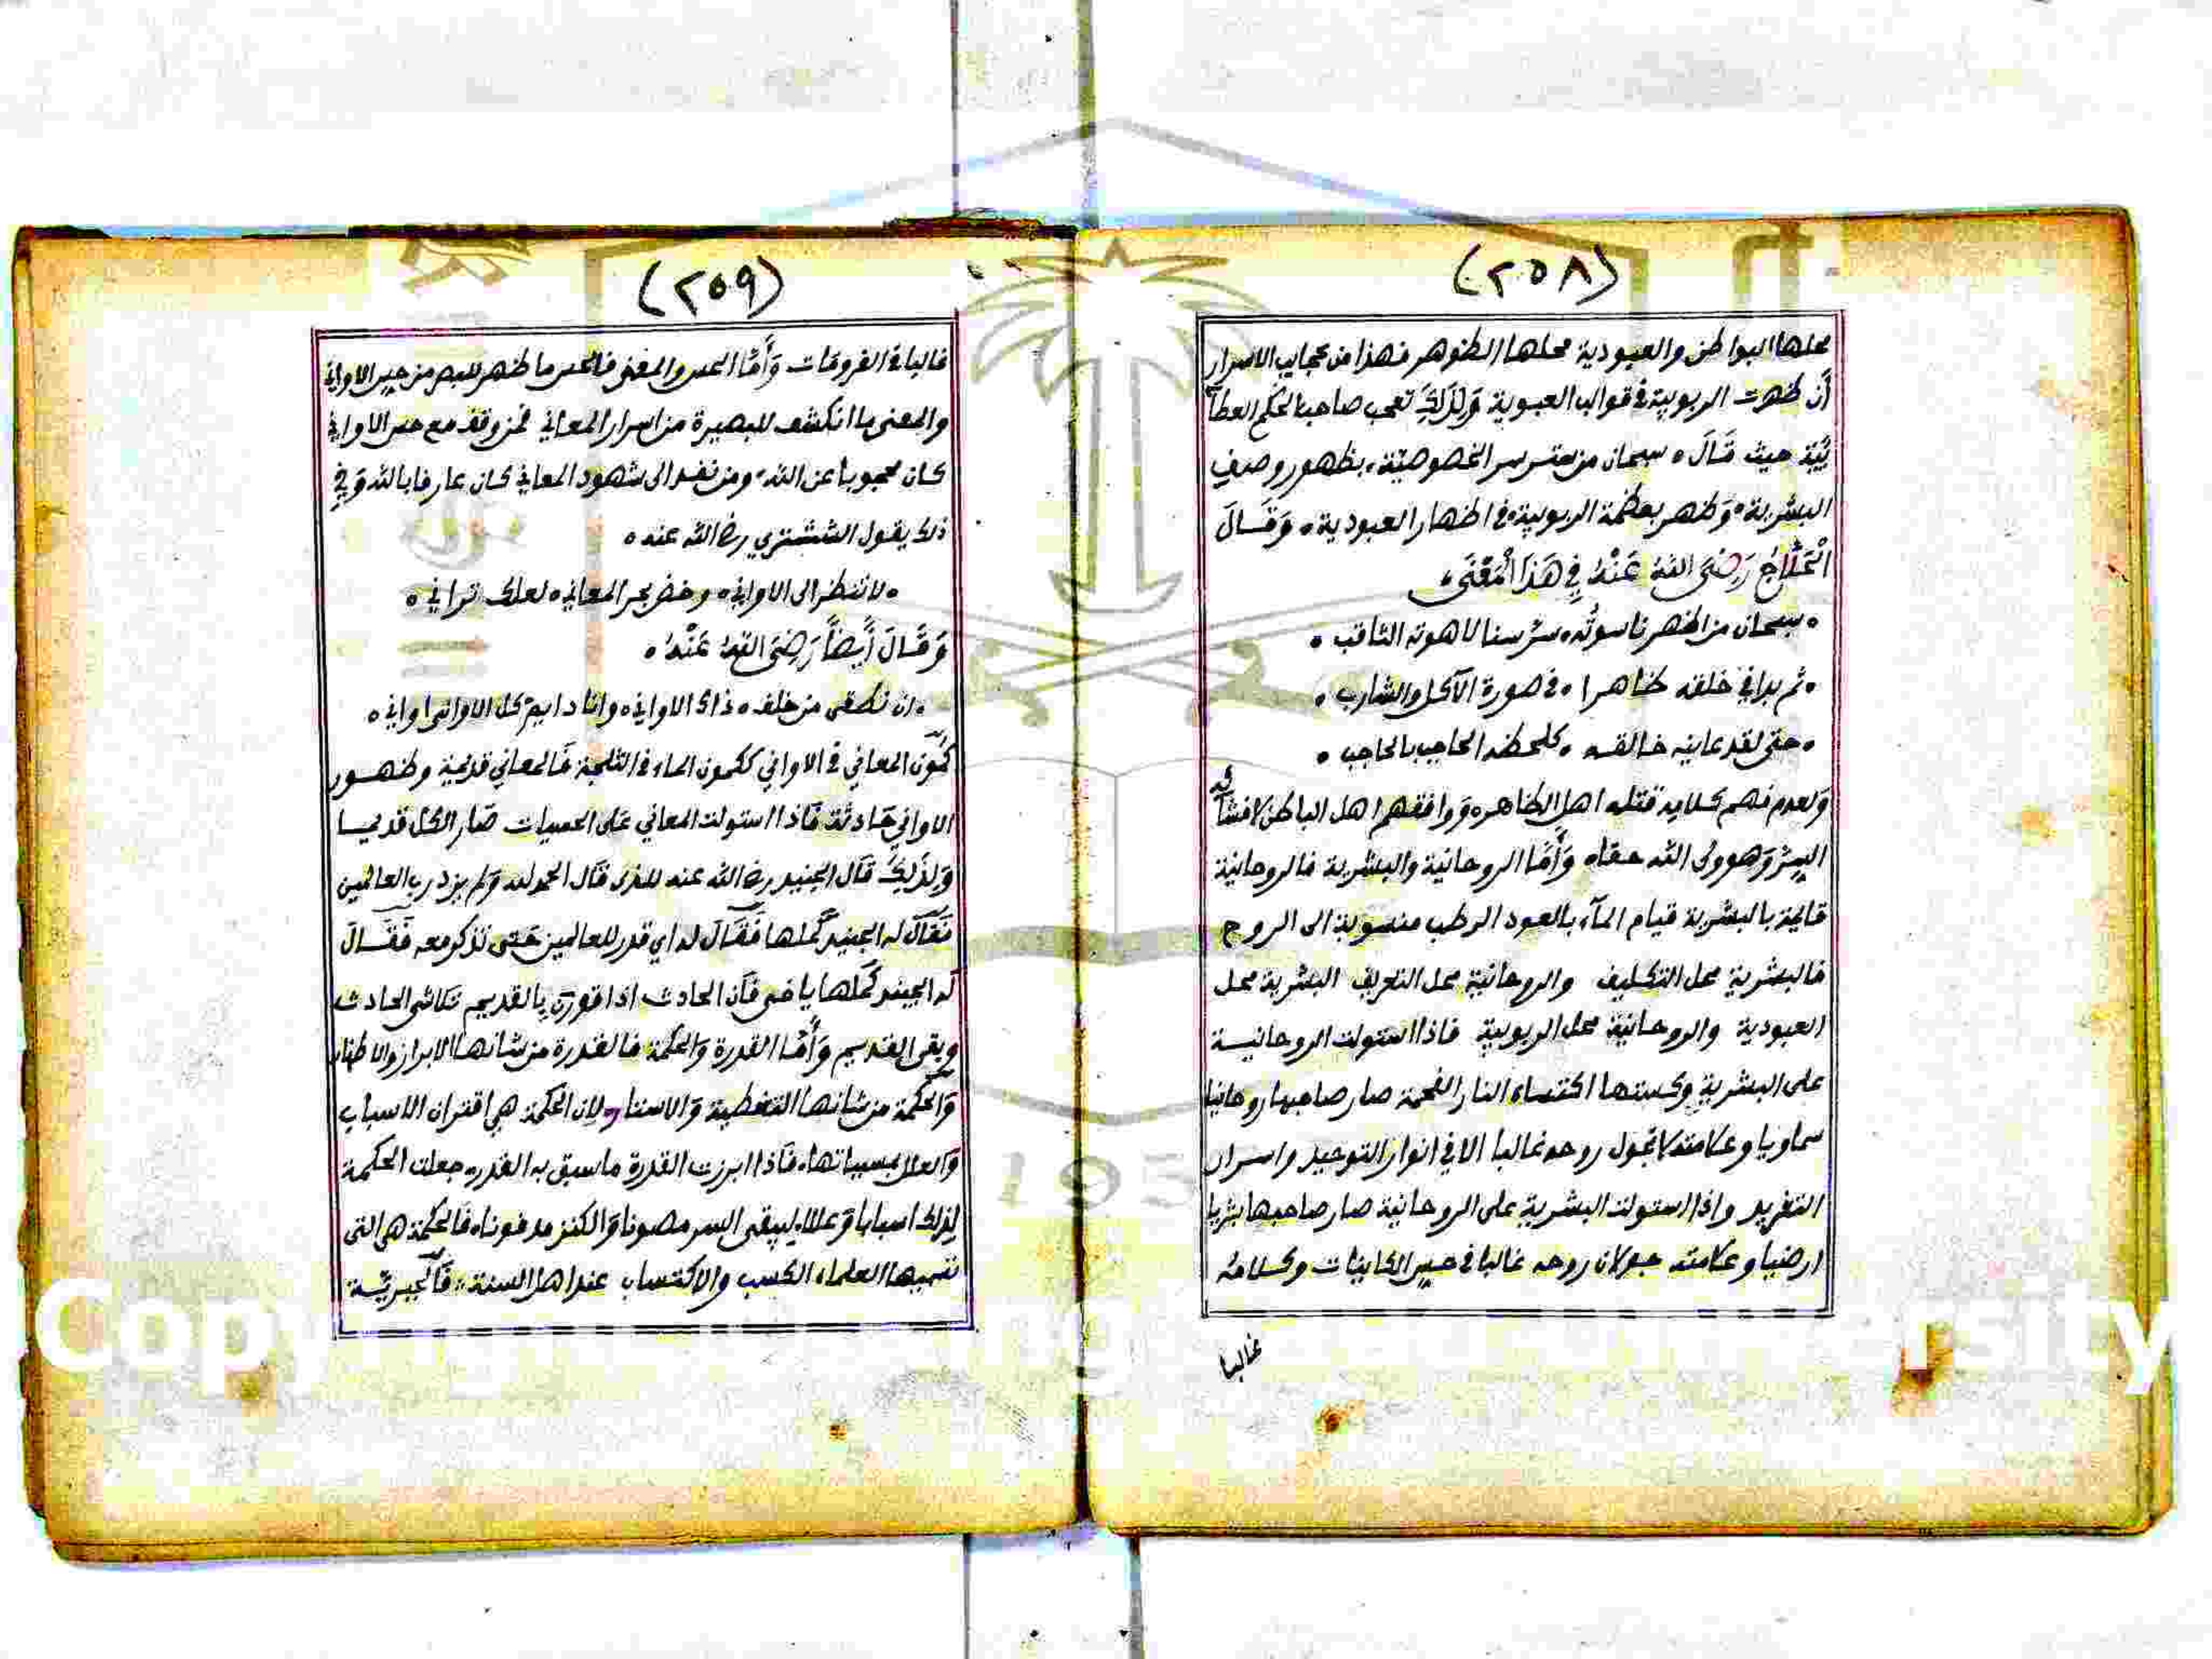 (٢٥٨)
محلها البواطن والعبودية محلها الظوهر فهذا من عجايب الاسرار
أن ظهرت الربوبية في قوالب العبوية وَلِذَلِكَ تعجب صاحب الحكم العطآ
ئيّة حيث قَالَ ، سبحان من ستر سر الخصوصيّة ، بظهور وصفِ
البشرية ، وَظهر بعظمة الربوبية ، في اظهار العبودية ، وَقَالَ
الْحَلَّاجُ رَضِيَ اللهُ عَنْهُ فِي هَذَا الْمَعْنَى ،
، سبحان من اظهر ناسوتُه ، سرّ سنا لاهوته الثاقب ،
، ثم بدا في خلقه ظاهرا ، في صورة الآكل والشارب ،
، حتى لقد عاينه خالقه ، كلحظه الحاجب بالحاجب ،
وَلعدم فهم كلامِه قتله اهل الظاهر ، وَوافقهم اهل الباطن لافشائه
السِرّ وَهو ولي الله حقا ، وَأمّا الروحانية والبشرية فالروحانية
قايمة بالبشرية قيام المآء بالعود الرطب منسوبة الى الروح
فالبشرية محل التكليف والروحانية محل التعريف البشرية محل
العبودية والروحانية محل الربوبية فاذا استولت الروحانية
على البشرية وكستها اكتساء النار الفحمة صار صاحبها روحانيا
سماويا وعلامته لا تجول روحه غالبا الا في انوار التوحيد واسرار
التفريد واذا استولت البشرية على الروحانية صار صاحبها بشريا
ارضيا وعلامته جولان روحه غالبا في حسِ الكاينات وكلامهُ
غالبا
(٢٥٩)
غالبا في الفروقات وَأَمَّا الحس والمعنى فالحس ما ظهر للبصر من حِس الاواني
والمعنى ما انكشف للبصيرة من اسرار المعاني فمن وقف مع حس الاواني
كان محجوباً عن الله ، ومن نفد الى شهود المعاني كان عارفا بالله وَفي
ذلك يقول الششتري رض الله عنه ،
، لا تنظر الى الاواني ، وخض بحر المعاني ، لعلك تراني ،
وَقَالَ أَيضاً رَضِيَ اللهُ عَنْهُ ،
، ان نطقى من خلف ، ذاك الاواني ، وانا دايم كل الاوانى اواني ،
كُمون المعاني في الاواني ككمون الماء في الثلجة فَالمعاني قديمة وظهور
الاواني حَادثة فَاذا استولت المعاني عَلى الحسيات صَار الكل قديما
وَلِذَلِكَ قَال الجنيد رض الله عنه للذى قَال الحمد لله وَلم يزد رب العالمين
فَقَالَ له الجنيد كَمِّلها فَقَالَ له اي قدر للعالمين حَتى تذكر معه فَقَالَ
له الجنيد كَمِّلها يا اخى فَان الحادث اذا قورن بِالقديم تلاشى الحادث
وبقى القديم وَأَمَّا القدرة وَالحكمة فالقدرة من شانها الابراز والاظهار
وَالحكمة من شانها التغطية وَالاستار لِان الحكمة هي اقتران الاسباب
وَالعلل بمسبباتها ، فَاذا ابرزت القدرة ما سبق به القدر ، جعلت الحكمة
لِذلك اسبابا وَعللا ، ليبقى السر مصونا وَالكنز مدفونا ، فَالحكمة هي التى
تسميها العلماء الكسب والاكتساب عند اهل السنة ، فَالجبريّة